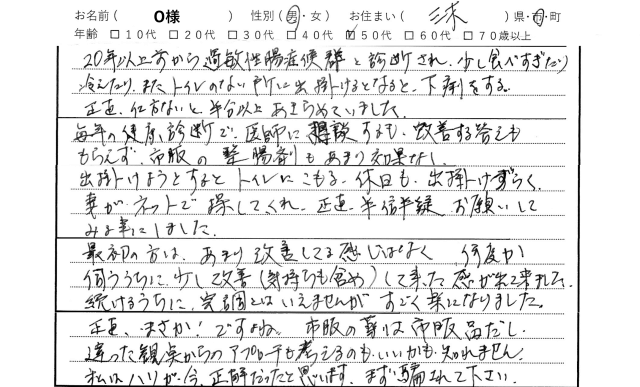 お名前( O様 ) 性別(男・女) お住まい( 三木 )県・市・町
年齢 □10代 □20代 □30代 □40代 ☑50代 □60代 □70歳以上
20年以上前から過敏性腸症候群と診断され、少し食べすぎたり
冷えたり、またトイレのない所に出掛けるとなると、下痢をする。
正直、仕方ないと半分以上あきらめていました。
毎年の健康診断で、医師に相談するも、改善する答えも
もらえず、市販の整腸剤もあまり効果なし。
出掛けようとするとトイレにこもる。休日も、出掛けずらく、
妻がネットで探してくれ、正直、半信半疑、お願いして
みる事にしました。
最初の方は、あまり改善してる感じはなく 何度か
伺ううちに、少し改善(気持ちも含め)して来た感が出て来ました。
続けるうちに、完調とはいえませんが すごく楽になりました。
正直、まさか!ですよね。市販の薬は市販品だし、
違った観点からのアプローチも考えるのも、いいかも、知れません。
私はハリが、今、正解だったと思います。まず騙されて下さい。